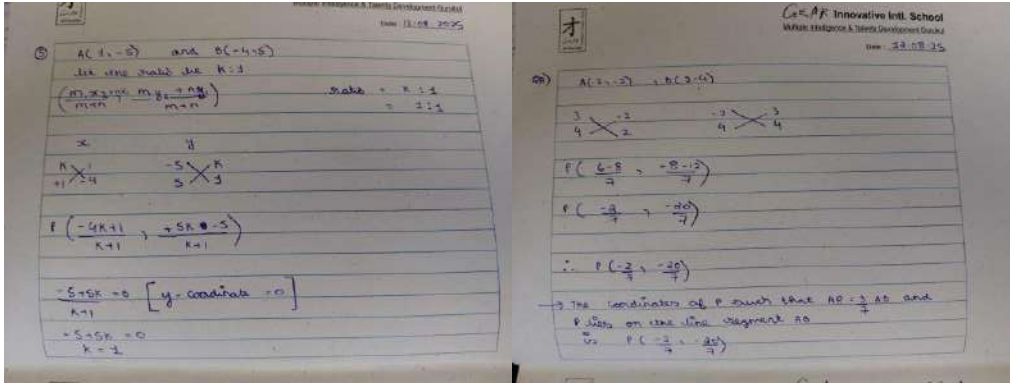 才
Multiple Intelligence & Talents Development Gurukul
Date: 13.08.2025
⑤ A(1, -5) and B(-4, 5)
let the ratio be K:1
(m x₂ + nx₁ / m+n , m y₂ + ny₁ / m+n) ratio = K:1
= 1:1
x y
K 1 -5 K
+1 -4 5 1
P(-4K+1 / K+1 , +5K -5 / K+1)
-5+5K / K+1 = 0 [y-coordinate = 0]
-5+5K = 0
K = 1
才
Innovative Intl. School
Multiple Intelligence & Talents Development Gurukul
Date: 13.08.25
3 -2 -2 3
4 2 4 4
P(6-8 / 7 , -8-12 / 7)
P(-2/7 , -20/7)
∴ P(-2/7 , -20/7)
→ The coordinates of P such that AP = 3/7 AB and
P lies on the line segment AB
is P(-2/7 , -20/7)